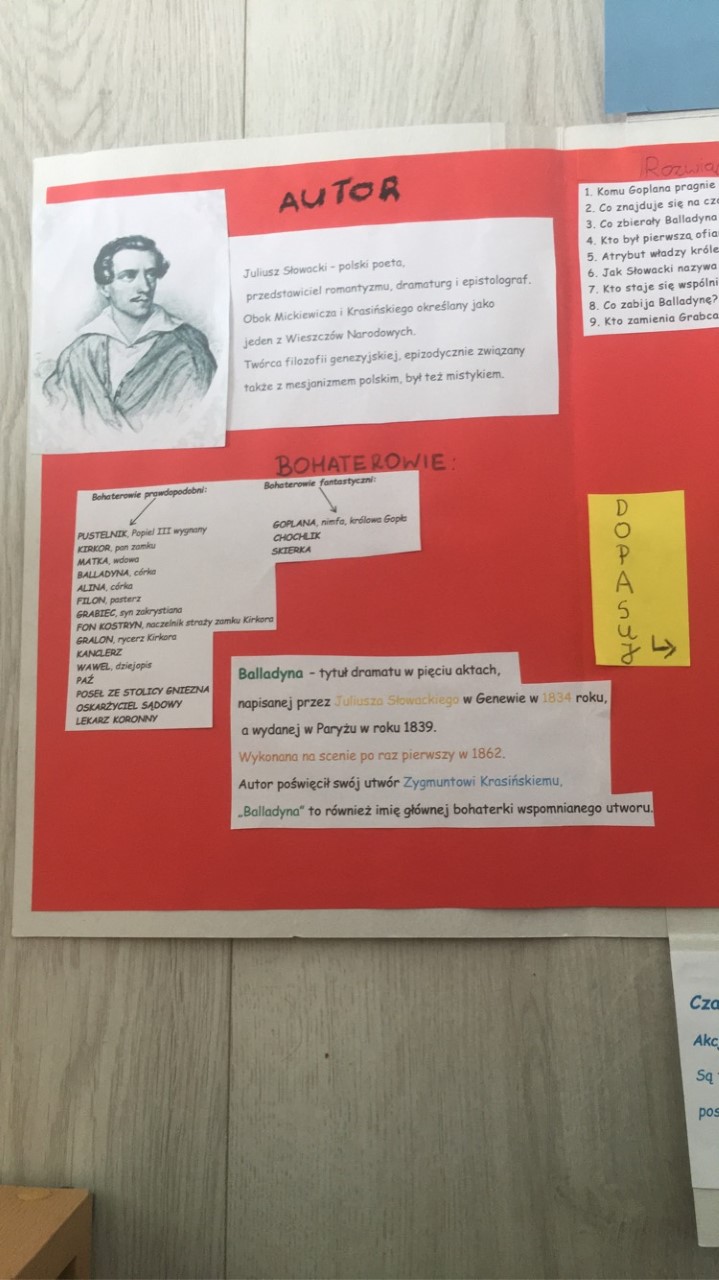 AUTOR
Juliusz Słowacki - polski poeta,
przedstawiciel romantyzmu, dramaturg i epistolograf.
Obok Mickiewicza i Krasińskiego określany jako
jeden z Wieszczów Narodowych.
Twórca filozofii genezyjskiej, epizodycznie związany
także z mesjanizmem polskim, był też mistykiem.
BOHATEROWIE:
Bohaterowie prawdopodobni:
PUSTELNIK, Popiel III wygnany
KIRKOR, pan zamku
MATKA, wdowa
BALLADYNA, córka
ALINA, córka
FILON, pasterz
GRABIEC, syn zakrystiana
FON KOSTRYN, naczelnik straży zamku Kirkora
GRALON, rycerz Kirkora
KANCLERZ
WAWEL, dziejopis
PAŹ
POSEŁ ZE STOLICY GNIEZNA
OSKARŻYCIEL SĄDOWY
LEKARZ KORONNY
Bohaterowie fantastyczni:
GOPLANA, nimfa, królowa Gopła
CHOCHLIK
SKIERKA
Balladyna - tytuł dramatu w pięciu aktach,
napisanej przez Juliusza Słowackiego w Genewie w 1834 roku,
a wydanej w Paryżu w roku 1839.
Wykonana na scenie po raz pierwszy w 1862.
Autor poświęcił swój utwór Zygmuntowi Krasińskiemu.
„Balladyna" to również imię głównej bohaterki wspomnianego utworu.
1. Komu Goplana pragnie
2. Co znajduje się na
3. Co zbierały Balladyna
4. Kto był pierwszą
5. Atrybut władzy
6. Jak Słowacki nazywa
7. Kto staje się
8. Co zabija Balladynę?
9. Kto zamienia Grabca
DOPASUJ
Są